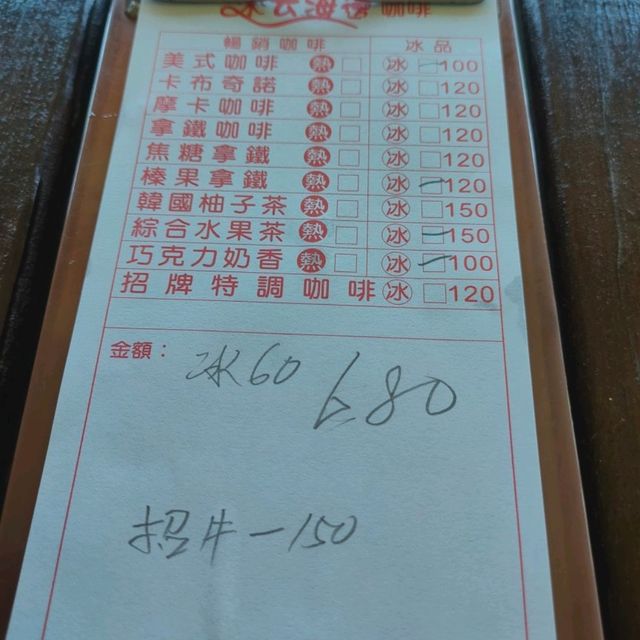 咖啡
暢銷咖啡 冰品
美式咖啡 熱 □ 冰 □100
卡布奇諾 熱 □ 冰 □120
摩卡咖啡 熱 □ 冰 □120
拿鐵咖啡 熱 □ 冰 □120
焦糖拿鐵 熱 □ 冰 □120
榛果拿鐵 熱 □ 冰 □120
韓國柚子茶 熱 □ 冰 □150
綜合水果茶 熱 □ 冰 □150
巧克力奶香 熱 □ 冰 □100
招牌特調咖啡 冰 □120
金額： 冰60 680
招牛一150